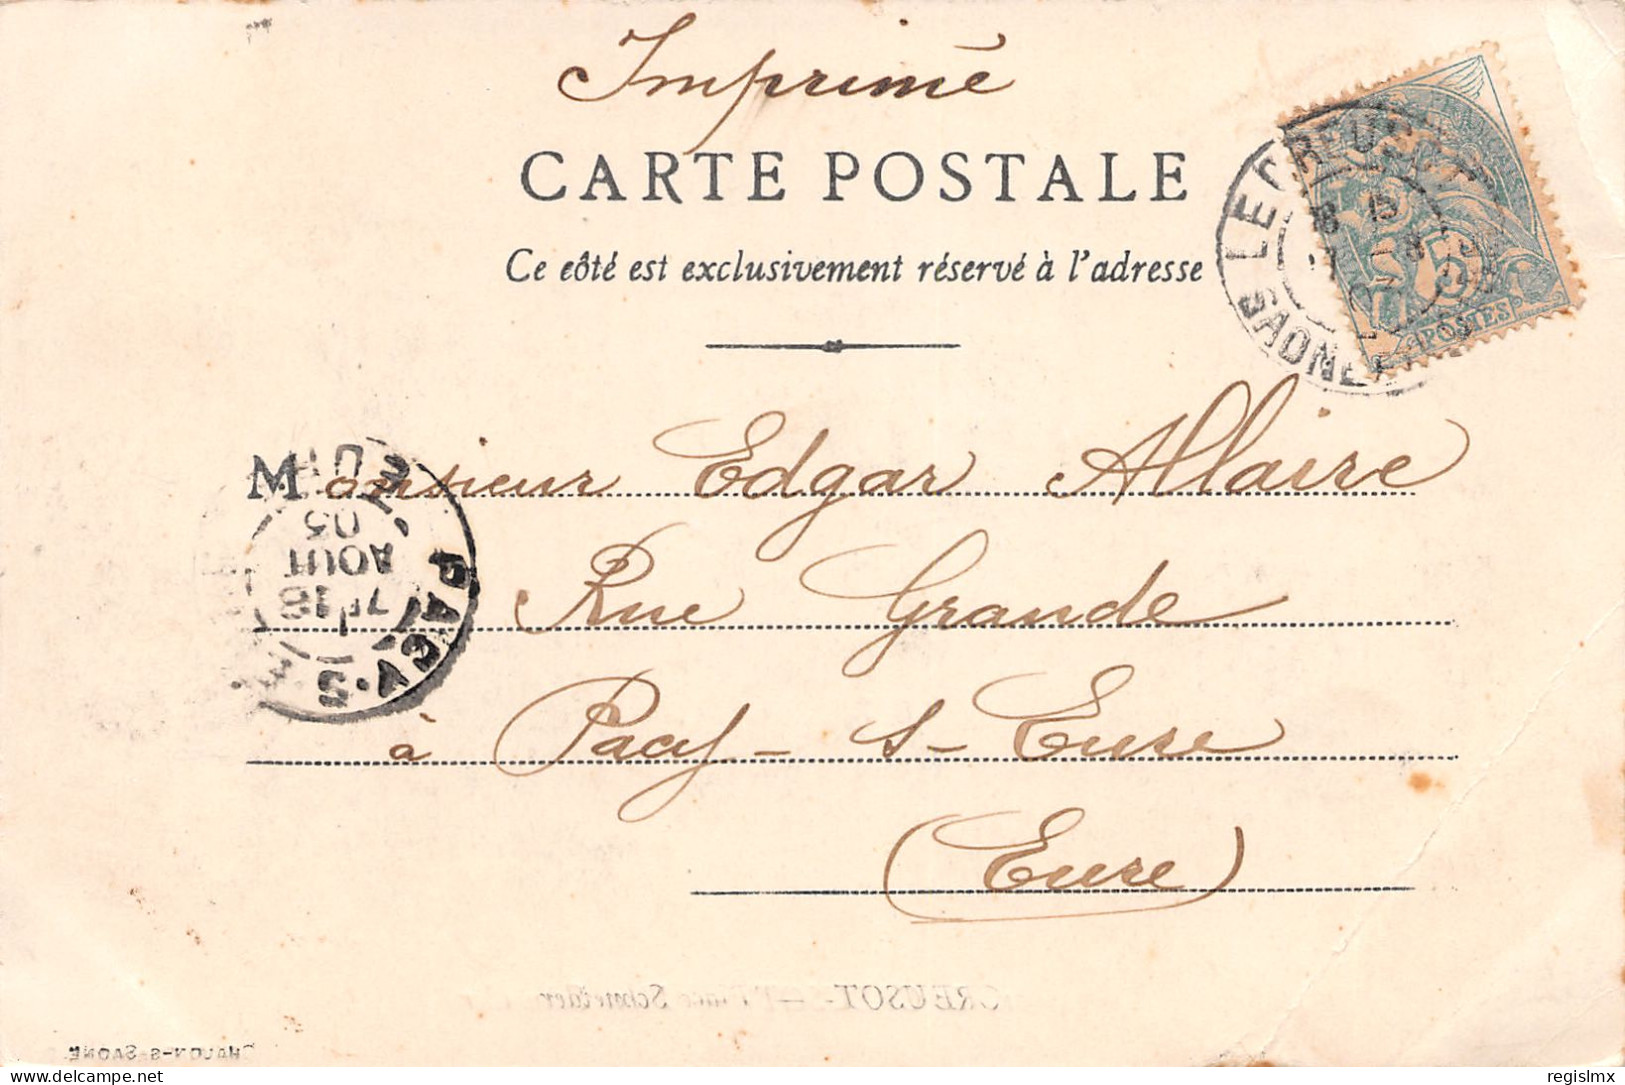 Imprimé
CARTE POSTALE
Ce côté est exclusivement réservé à l'adresse
LE CREUSOT
SAONE
POSTES
5
Monsieur Edgar Allaire
Rue Grande
à Pacy-s-Eure
(Eure)
PACY-S
EURE
7E 18
AOUT
03
CREUSOT. — Place Schneider
CHALON-S-SAONE
regislmx
www.delcampe.net